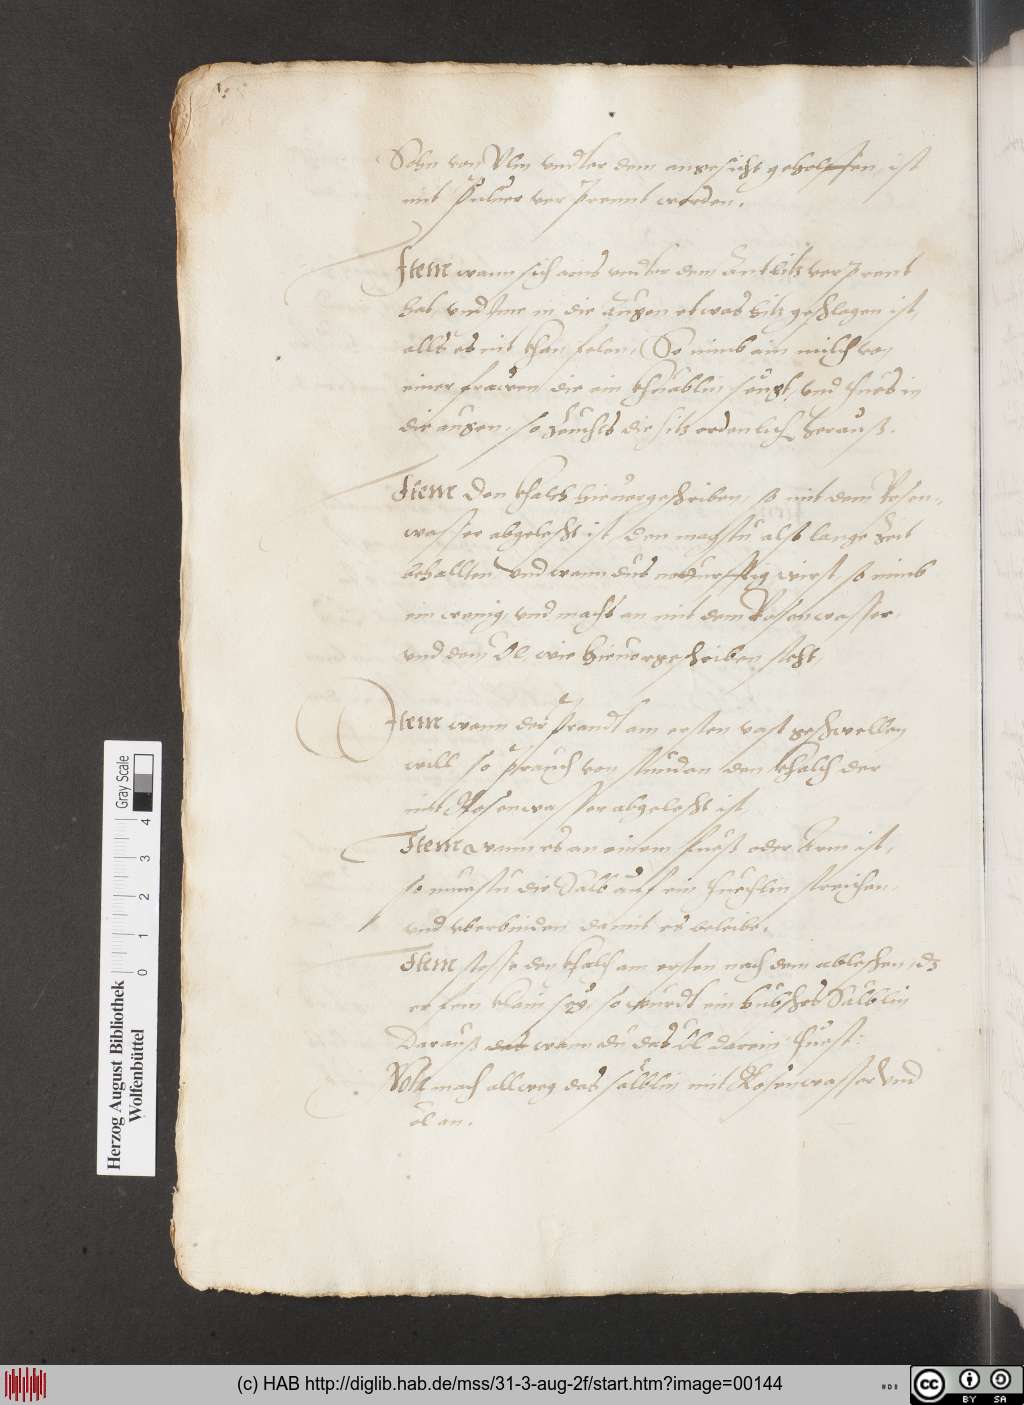 Sohn von Ulm vnndter dem angesicht geholffen, ist
mit Puluer ver Prennt worden.
Item wann sich ains vndter dem Antlitz ver Prent
hab, vnd Ime in die Augen etwas hitz geschlagen ist,
alls es nit khan felen, So nimb ain milch von
einer frawen die ein khnäblin seugt, vnd thues in
die augen, so zeuchts die hitz ordenlich herauß.
Item Den khalch hieuorgeschriben, so mit dem Rosen-
wasser abgelescht ist, den magstu alß lange zeit
behallten, vnd wann dus notturfftig wirst so nimb
ein wenig, vnd machs an mit dem Rosenwasser
vnd dem Ol, wie hieuorgeschriben steht,
Item wann der Prandt am ersten vast geschwellen
will so Prauch von stundan den khalch der
mit Rosenwasser abgelescht ist,
Item wann es an einem Fueß oder Arm ist,
so muestu die Salb auf ein thuechlin streichen,
vnd vberbinden damit es beleibe.
Item stosse den khalch am ersten nach dem ableschen, dz
er fein klain sey, so wurdt ein hubsches Sälblin
Darauß das wann du das öl darein thuest:
Nota mach allweg das sälblin mit Rosenwasser vnd
öl an.
Gray Scale
4
3
2
1
0
Herzog August Bibliothek
Wolfenbüttel
(c) HAB http://diglib.hab.de/mss/31-3-aug-2f/start.htm?image=00144
HAB
cc
BY SA